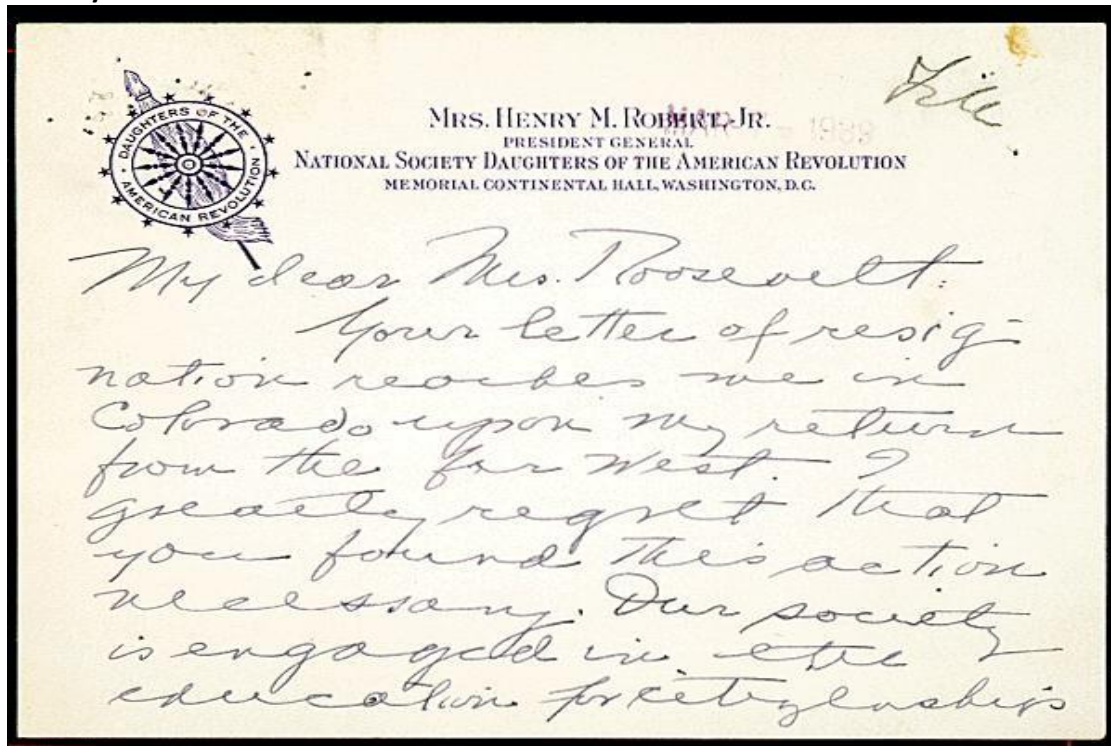 File
DAUGHTERS OF THE
AMERICAN REVOLUTION
MRS. HENRY M. ROBERT, JR.
PRESIDENT GENERAL
NATIONAL SOCIETY DAUGHTERS OF THE AMERICAN REVOLUTION
MEMORIAL CONTINENTAL HALL, WASHINGTON, D.C.
My dear Mrs. Roosevelt:
Your letter of resig-
nation reaches me in
Colorado upon my return
from the far West. I
greatly regret that
you found this action
necessary. Our society
is engaged in the
education for citizenship